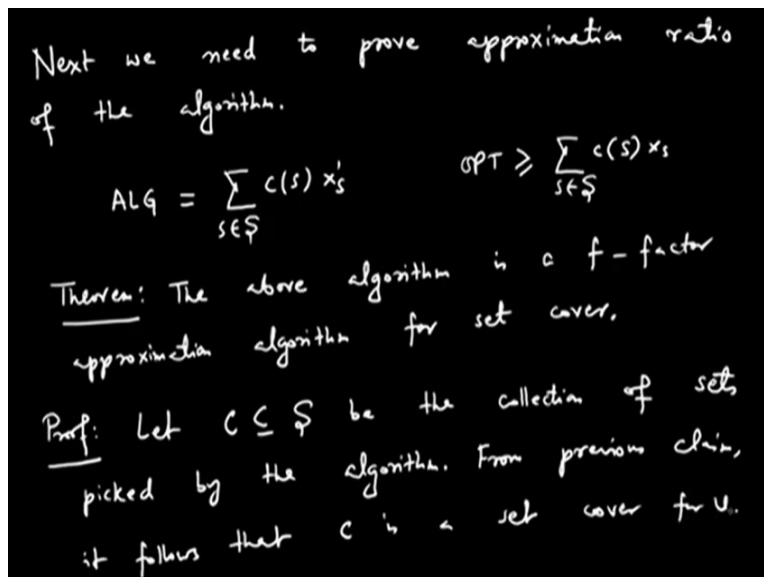 Next we need to prove approximation ratio
of the algorithm.
ALG = ∑ c(s) x's    OPT ≥ ∑ c(s) xs
S∈$    S∈$
Theorem: The above algorithm is a f - factor
approximation algorithm for set cover.
Proof: Let C ⊆ $ be the collection of sets
picked by the algorithm. From previous claim,
it follows that C is a set cover for U.